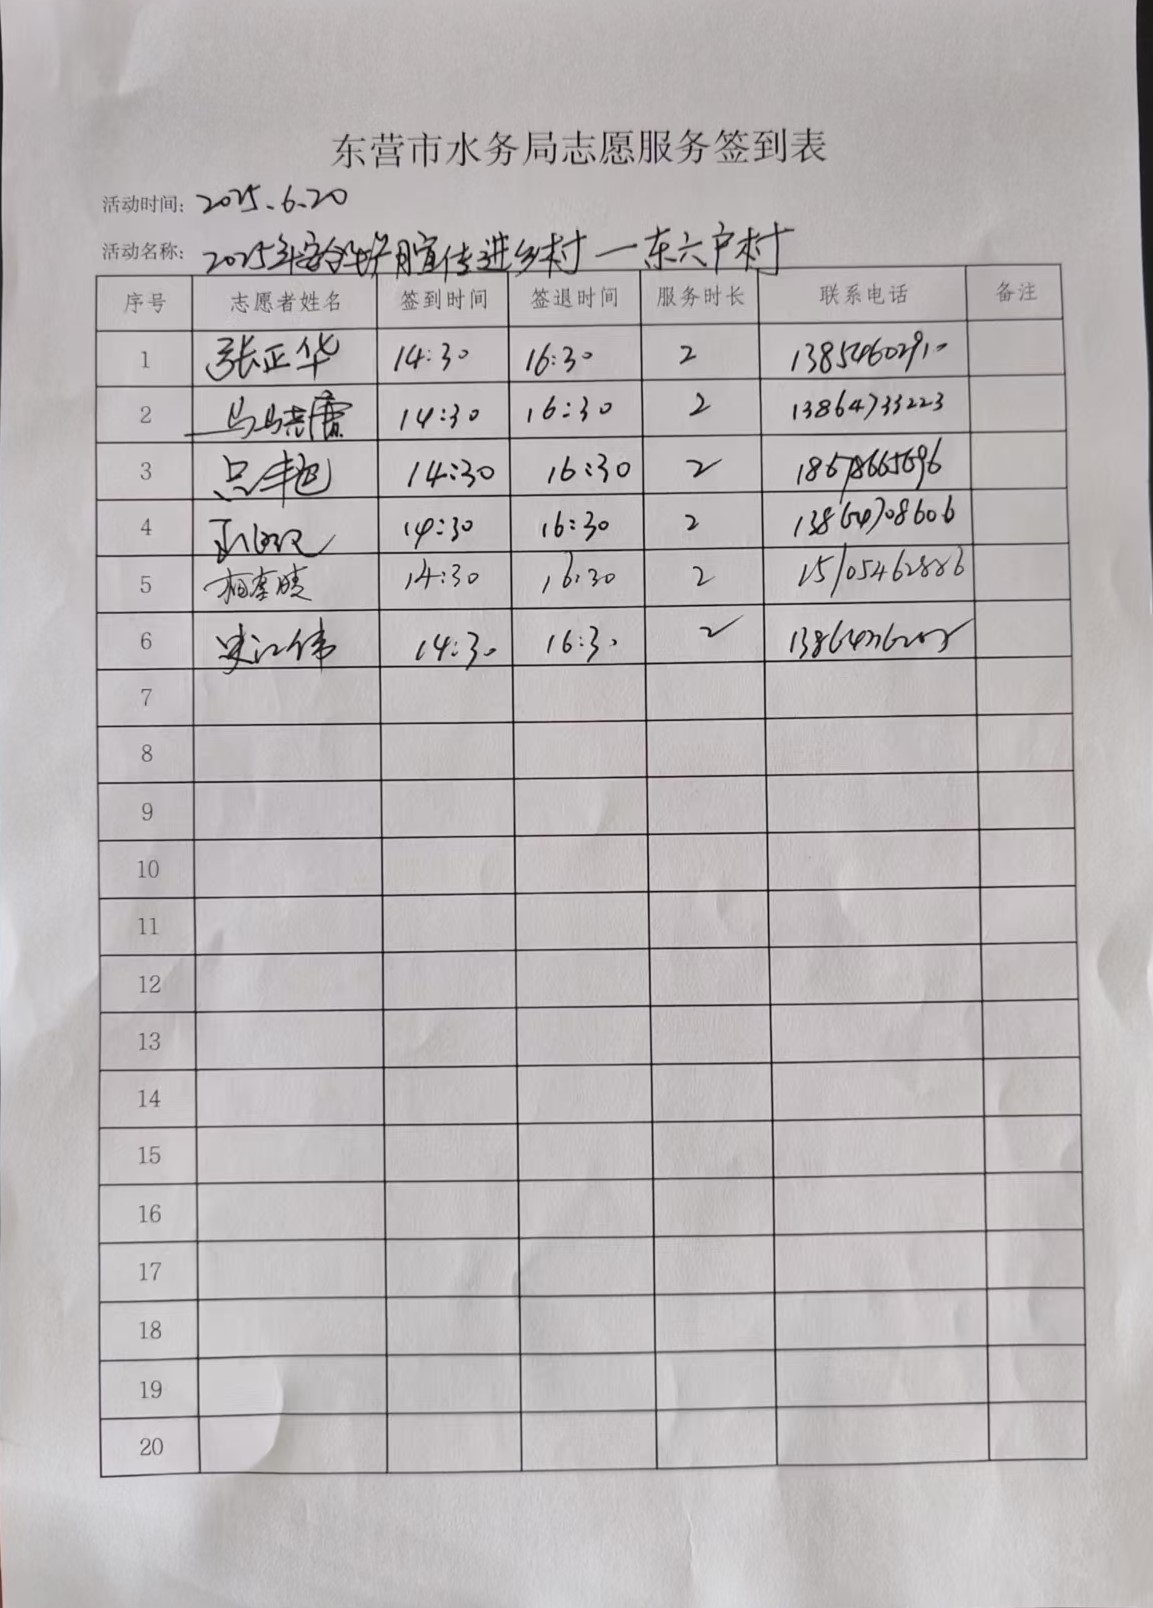 东营市水务局志愿服务签到表
活动时间：2025.6.20
活动名称：2025年安全生产月宣传进乡村—东六户村
序号 志愿者姓名 签到时间 签退时间 服务时长 联系电话 备注
1 张正华 14:30 16:30 2 13854602910
2 14:30 16:30 2 13864733223
3 14:30 16:30 2 18678665696
4 14:30 16:30 2 13864708606
5 14:30 16:30 2 15105462886
6 宋江伟 14:30 16:30 2
7
8
9
10
11
12
13
14
15
16
17
18
19
20